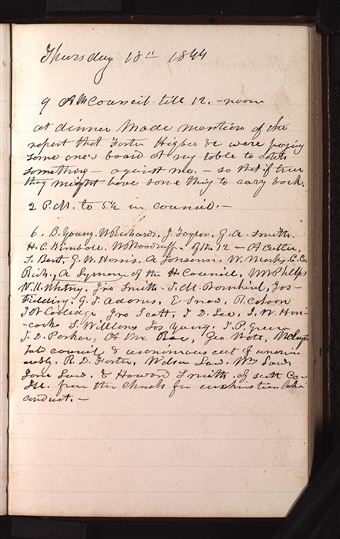 Thursday 18th 1844
9 A M Council till 12. - noon
at dinner Made mention of the
report that Foster Higbee &c were paying
some one's board at my table to catch
something - against me. - so that if true
they might have something to carry back.
2 P.M. to 5½ in council. -
6. B. Young. W Richards, J. Taylor, G. A. Smith.
H. C. Kimball. W Woodruff - of the 12 - A Cutler,
S. Bent, G. W. Harris. A Johnson. W. Marks, C. C.
Rich, A. of the H Council, W W Phelps
N. K. Whitney. Jno Smith. J. M. Bernhisel, Jos
Fielding. G. J. Adams, E Snow, R
J W Coolidge, Jno Scott, J D. Lee, L. W. Han-
cock S. Williams Jos Young. J. P. Green
J. D. Parker, A Geo Watt, W
held council & unanimously cut off
R. D. Foster, Wilson Law. Wm Law.
Jane Law. & Howard Smith of Scott Co
Ill. from the Church for unchristian like
conduct. -